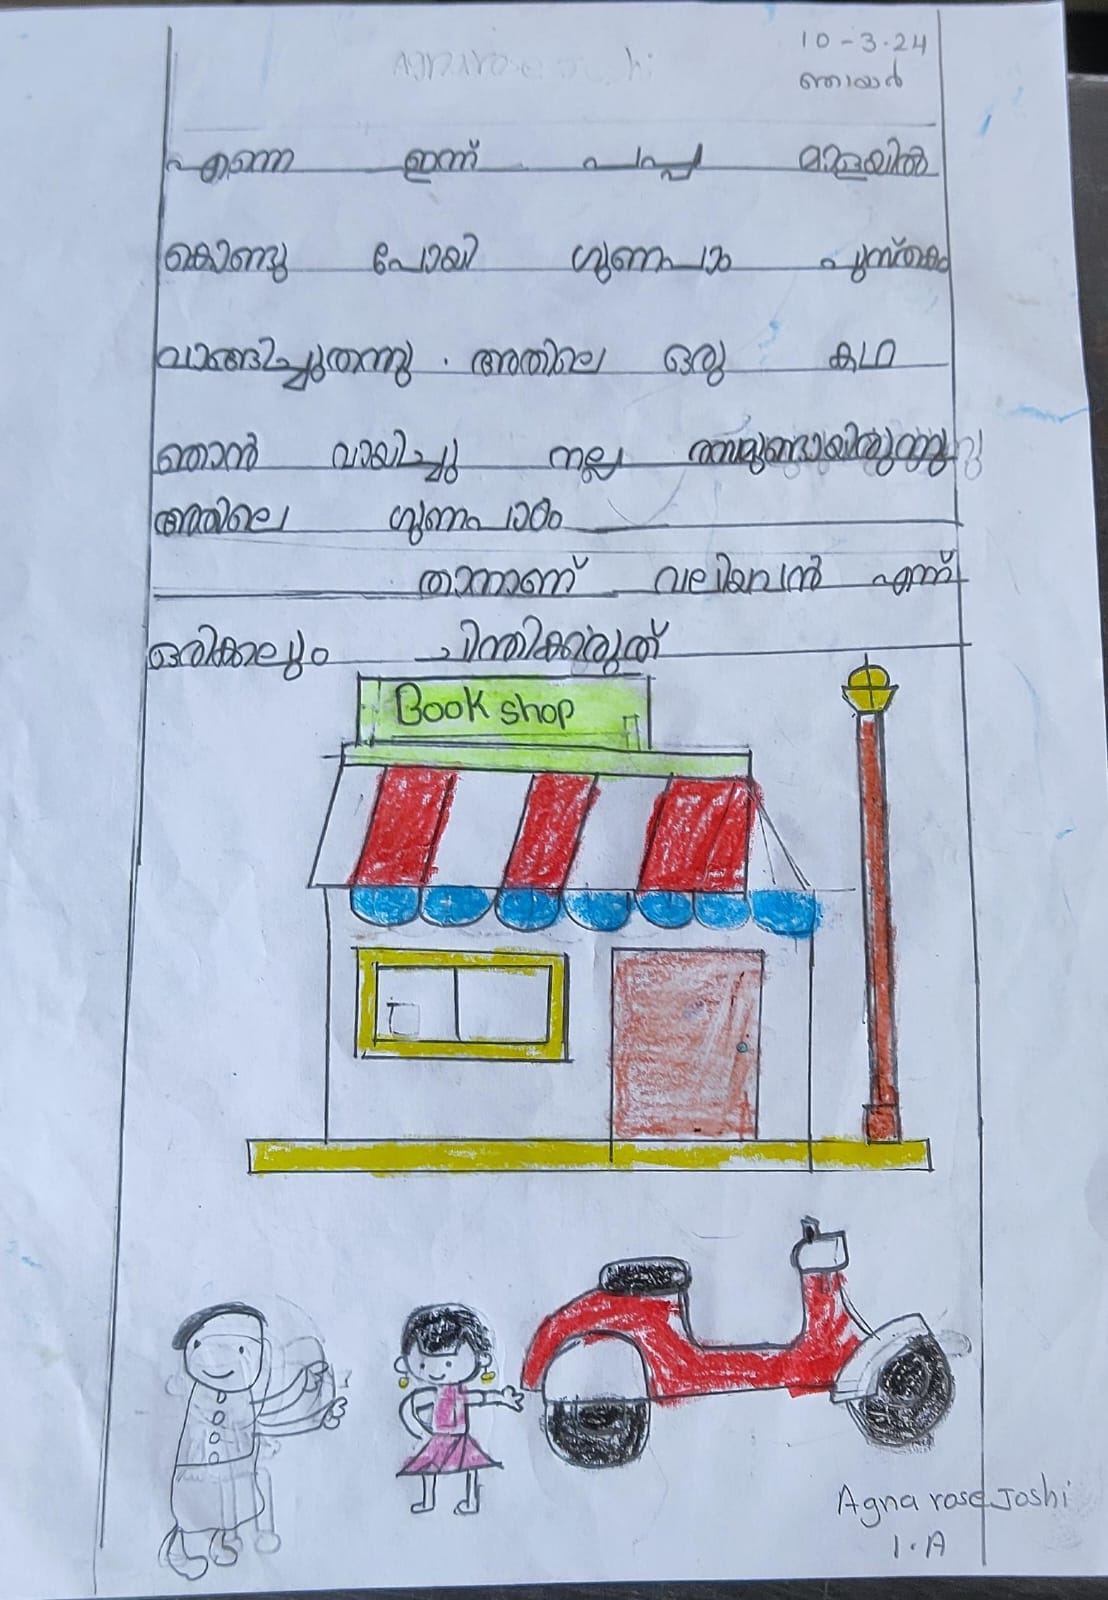 Agna rose Joshi
10-3-24
ഞായർ
എന്നെ ഇന്ന് പപ്പ മാളയിൽ
കൊണ്ടു പോയി ഗുണപാഠ പുസ്തകം
വാങ്ങിച്ചുതന്നു . അതിലെ ഒരു കഥ
ഞാൻ വായിച്ചു നല്ല
അതിലെ ഗുണപാഠം
താനാണ് വലിയവൻ എന്ന്
ഒരിക്കലും ചിന്തിക്കരുത്
Book shop
Agna rose Joshi
1.A